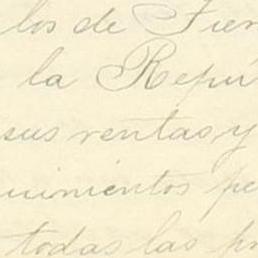 los de Tier
la Repú
sus rentas y
uimientos pe
todas las pr